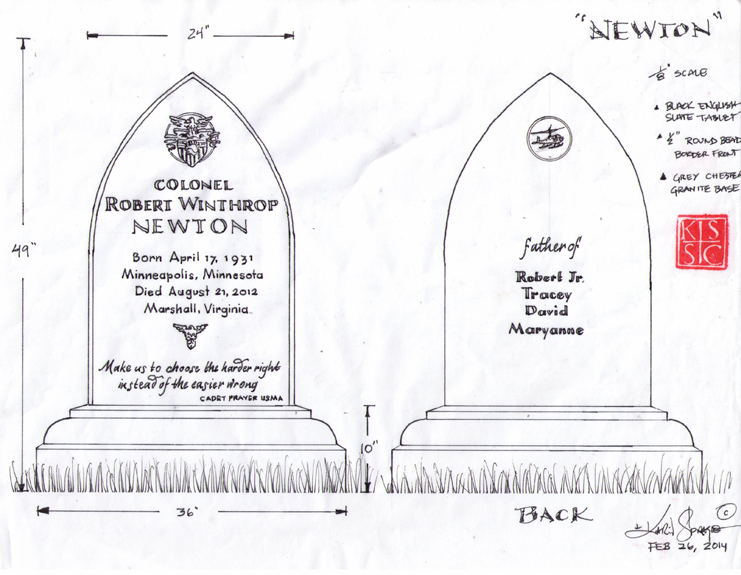 "NEWTON"
24"
1/8" SCALE
▲ BLACK ENGLISH
SLATE TABLET
▲ 1/2" ROUND BEAD
BORDER FRONT
▲ GREY CHESTER
GRANITE BASE
KS
SC
49"
COLONEL
ROBERT WINTHROP
NEWTON
Born April 17, 1931
Minneapolis, Minnesota
Died August 21, 2012
Marshall, Virginia
Make us to choose the harder right
instead of the easier wrong
CADET PRAYER USMA
10"
36"
father of
Robert Jr.
Tracey
David
Maryanne
BACK
©
FEB 26, 2014